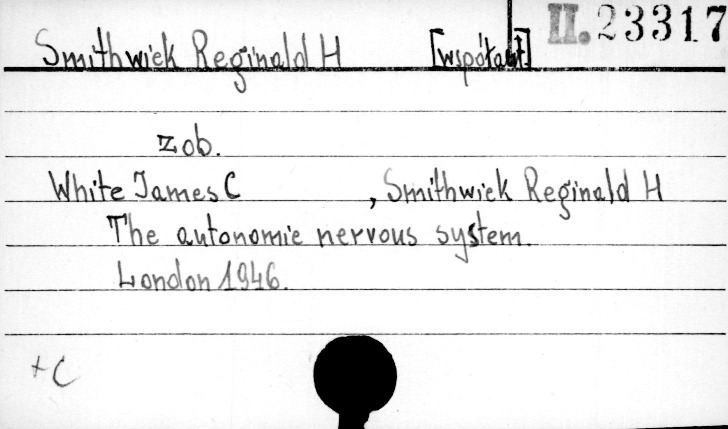 Smithwick Reginald H [współaut] II. 23317
zob.
White James C , Smithwick Reginald H
The autonomic nervous system.
London 1946.
+C